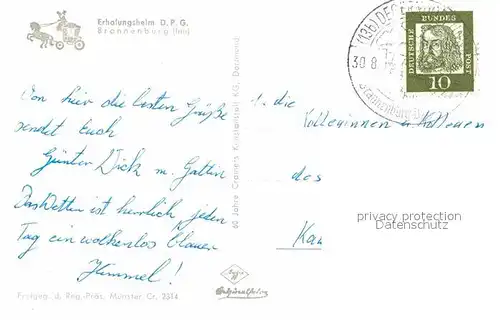 Erholungsheim D. P. G.
Brannenburg (Inn)
Von hier die besten Grüße
sendet Euch
Günter Dick m. Gattin
Das Wetter ist herrlich, jeden
Tag ein wolkenlos blauer
Himmel!
Reg.-Präs. Münster Cr. 2314
60 Jahre Cramers Kunstanstalt KG, Dortmund
(13b)
30 8
Brannenburg
DEUTSCHE
BUNDES
POST
10
die
Kolleginnen u. Kollegen
des
Kan
privacy protection
Datenschutz